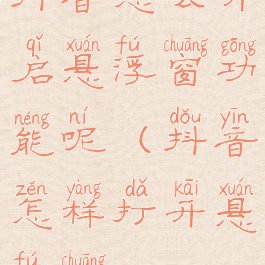 qǐ xuán fú chuāng gōng
启悬浮窗功
néng ní dǒu yīn
能呢（抖音
zěn yàng dǎ kāi xuán
怎样打开悬
fú chuāng